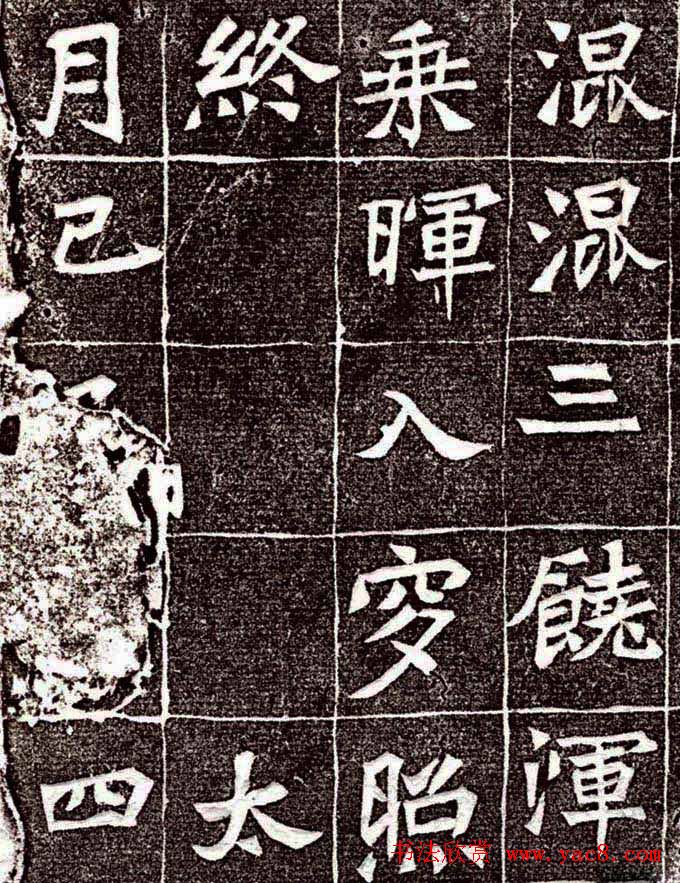 混混三饒渾
乘暉入穸昭
終太
月己四
书法欣赏 www.yac8.com